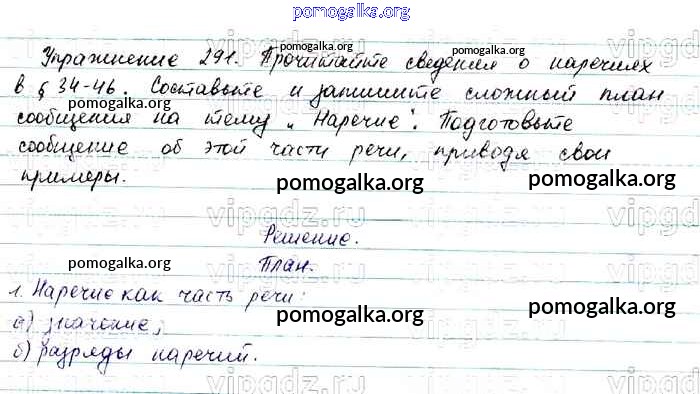 pomogalka.org
Упражнение 291. Прочитайте сведения о наречиях
в § 34-46. Составьте и запишите сложный план
сообщения на тему „Наречие". Подготовьте
сообщение об этой части речи, приводя свои
примеры.
Решение.
План.
1. Наречие как часть речи:
а) значение;
б) разряды наречий.
pomogalka.org
pomogalka.org
pomogalka.org
pomogalka.org
pomogalka.org
pomogalka.org
pomogalka.org
pomogalka.org
vipgdz.ru
vipgdz.ru
vipgdz.ru
vipgdz.ru